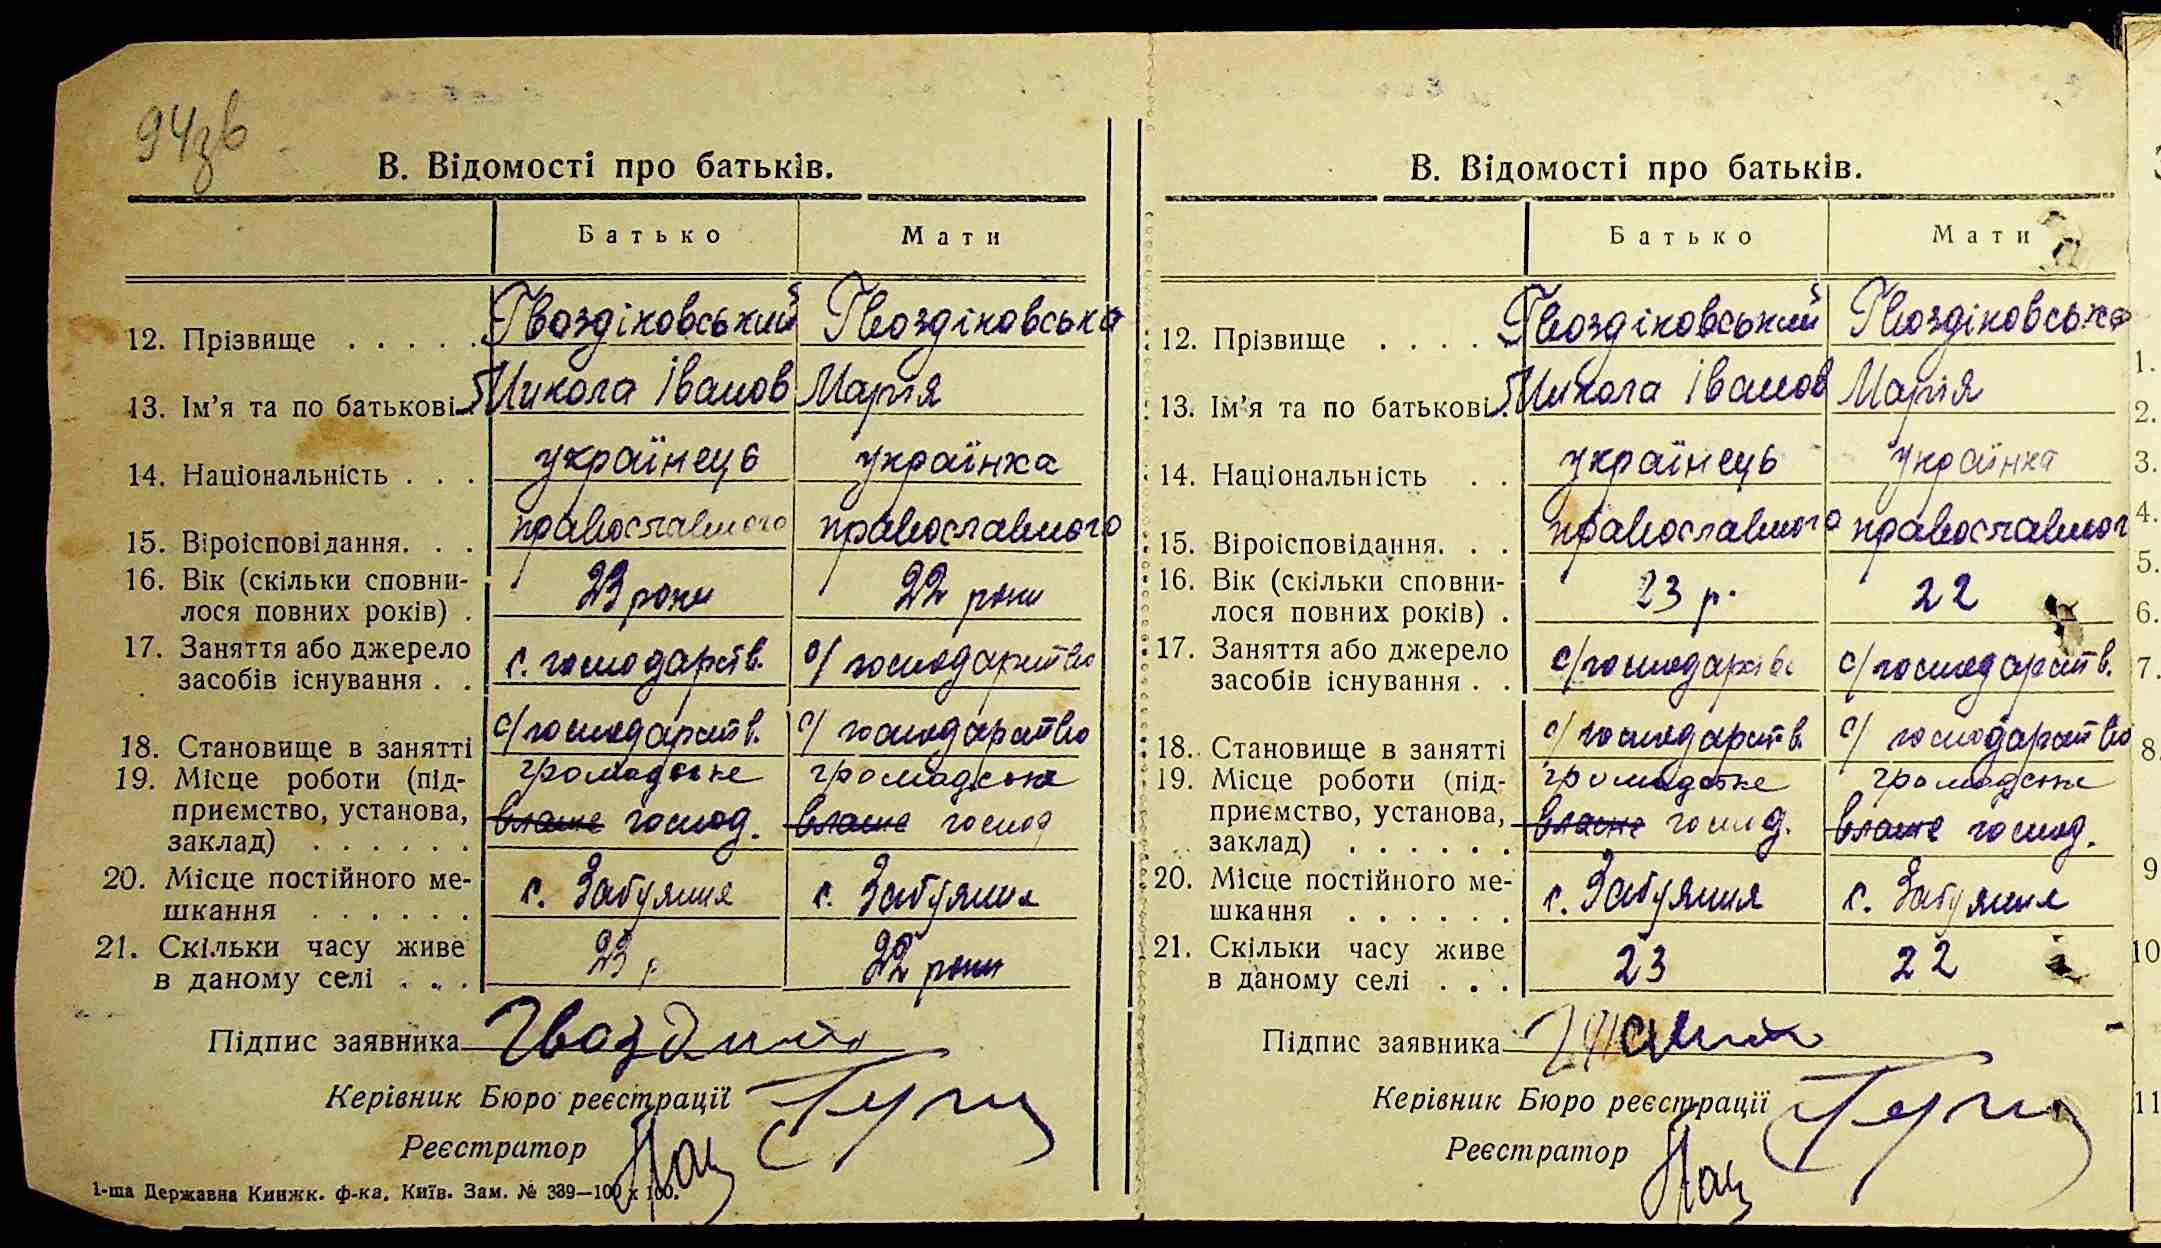 94зв
В. Відомості про батьків.
Батько Мати
12. Прізвище . . . . . Гвоздіковський Гвоздіковська
13. Ім’я та по батькові. Микола Іванов Марія
14. Національність . . . українець українка
15. Віроісповідання. . . православного православного
16. Вік (скільки сповни-
лося повних років) . 23 роки 22 роки
17. Заняття або джерело
засобів існування . . с. господарств. с/господарство
18. Становище в занятті с/господарств. с/господарство
19. Місце роботи (під- громадське громадське
приємство, установа, власне господ. власне господ
заклад) . . . . . .
20. Місце постійного ме-
шкання . . . . . . с. Забуяння с. Забуяння
21. Скільки часу живе
в даному селі . . . 23 р 22 роки
Підпис заявника
Керівник Бюро реєстрації
Реєстратор
1-ша Державна Книжк. ф-ка. Київ. Зам. № 339—100 x 100.
В. Відомості про батьків.
Батько Мати
12. Прізвище . . . . Гвоздіковський Гвоздіковська
13. Ім’я та по батькові. Микола Іванов Марія
14. Національність . . українець українка
15. Віроісповідання. . . православного православног
16. Вік (скільки сповни-
лося повних років) . 23 р. 22
17. Заняття або джерело
засобів існування . . с/господарств с/господарств.
18. Становище в занятті с/господарств. с/господарство
19. Місце роботи (під- громадське громадське
приємство, установа, власне господ. власне господ.
заклад) . . . . . .
20. Місце постійного ме-
шкання . . . . . . с. Забуяння с. Забуяння
21. Скільки часу живе
в даному селі . . . 23 22
Підпис заявника
Керівник Бюро реєстрації
Реєстратор
1.
2.
3.
4.
5.
6.
7.
8.
9
10
11